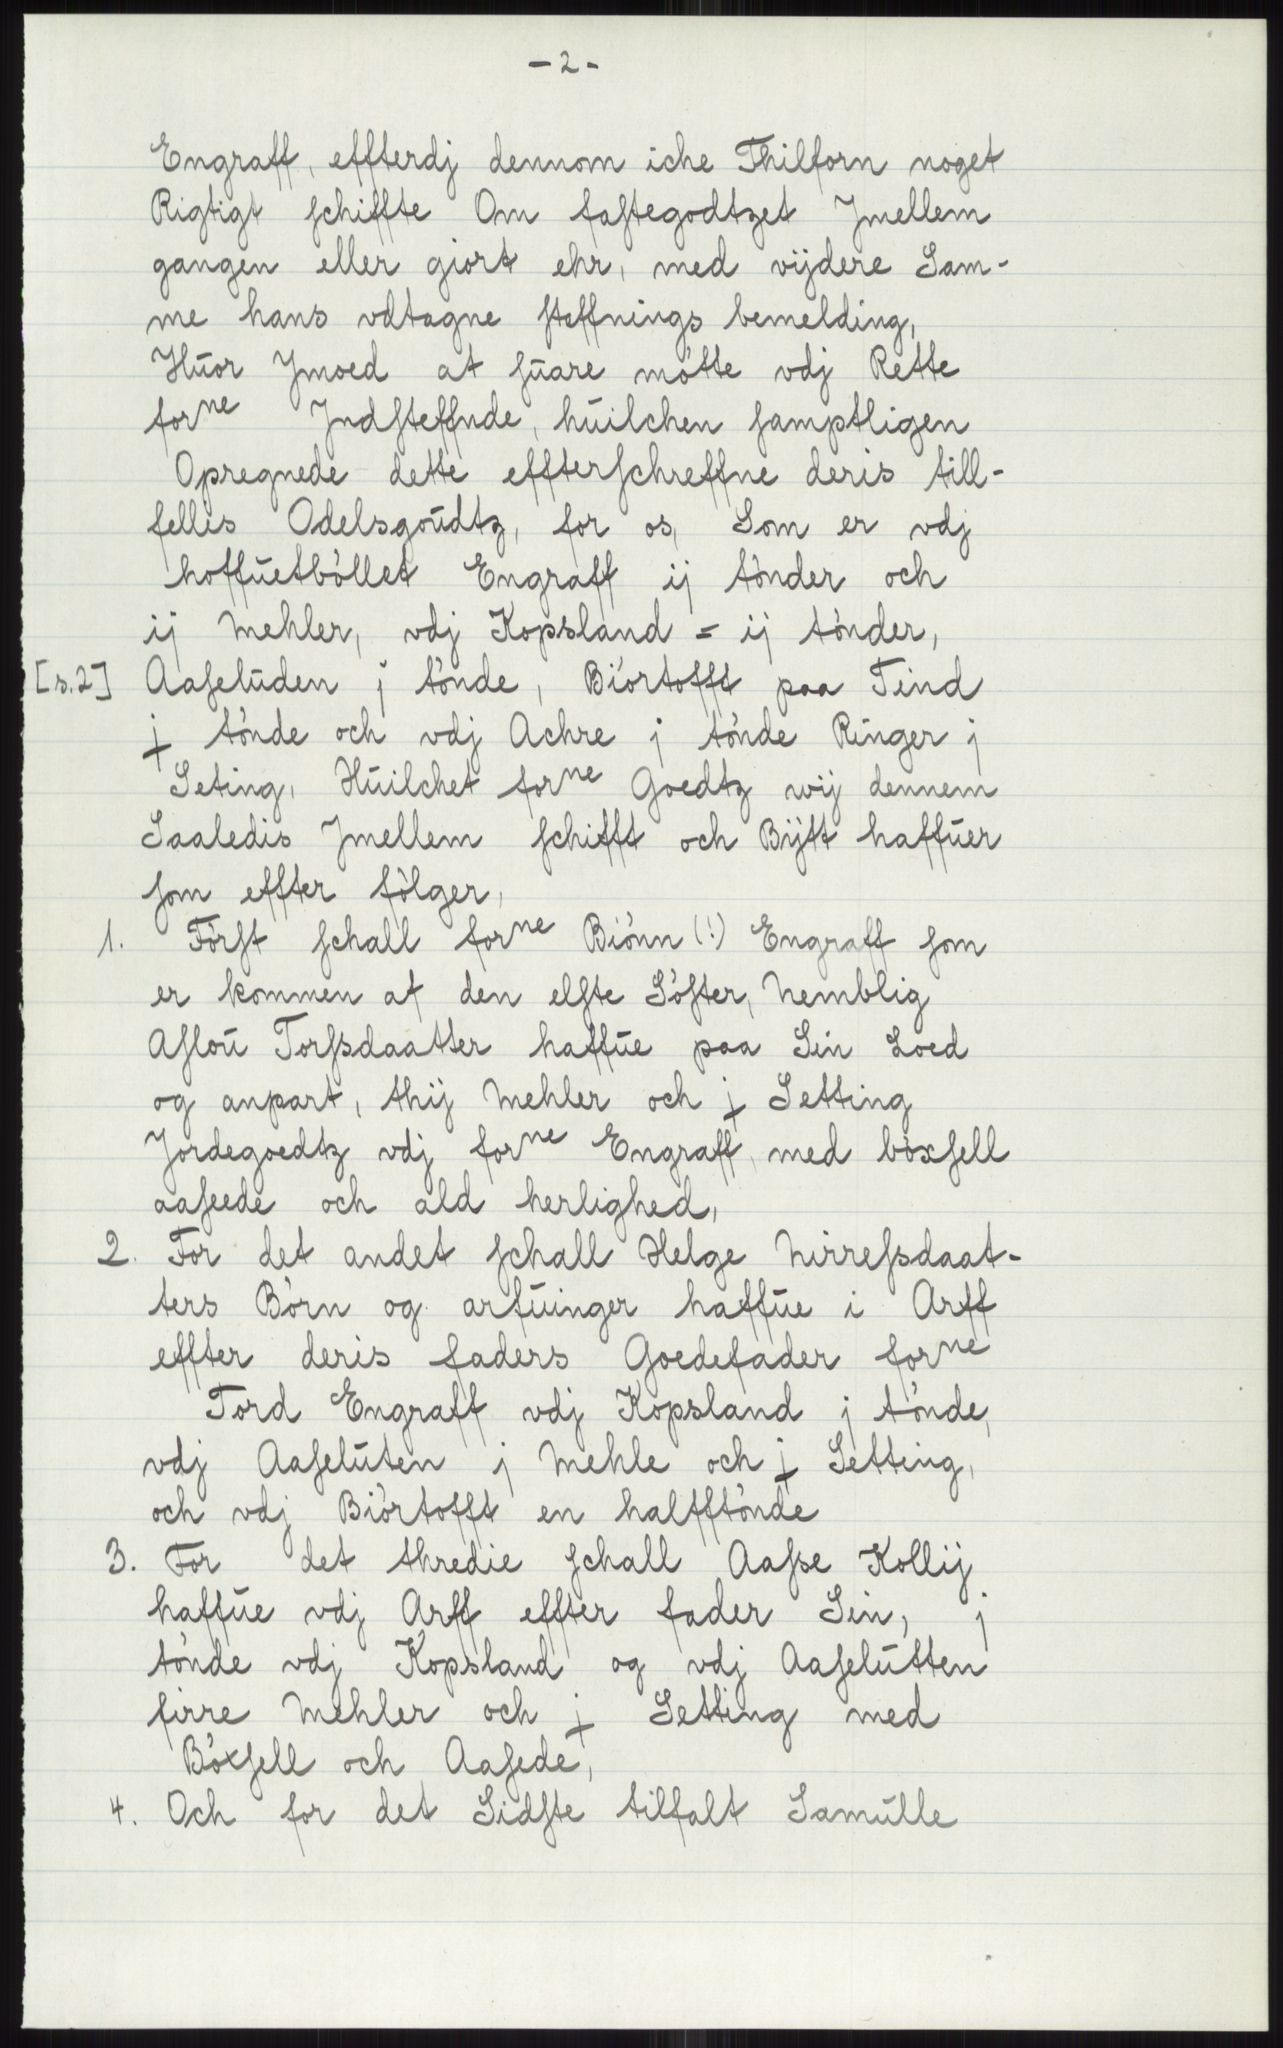 - 2 -
Engraff, effterdj dennom iche Thilforn noget
Rigtigt schiffte Om fastegodtzet Jmellem
gangen eller giort ehr, med vijdere Sam-
me hans vdtagne steffnings bemelding,
Huor Jmoed at suare mötte vdj Rette
forne Jndsteffnde, huilchen samptligen
Opregnede dette effterschreffne deris till-
fellis Odelsgoudtz, for os, Som er vdj
hoffuetböllet Engraff ij tönder och
ij Mehler, vdj Kopsland = ij tönder,
[s.2] Aaseluden j tönde, Biörtofft paa Tind
j tönde och vdj Achre j tönde Ringer j
Seting, Huilchet forne Goedtz wij dennem
Saaledis Jmellem schifft och Bÿtt haffuer
som effter fölger,
1. Först schall forne Biönn (!) Engraff som
er kommen af den elste Söster, Nemblig
Aslou Torssdaatter haffue paa Sin Loed
og anpart, thij Mehler och j Setting
Jordegoedtz vdj forne Engraff, med böxsell
aaseede och ald herlighed,
2. For det andet schall Helge Nirressdaat-
ters Börn og arfuinger haffue i Arff
effter deris faders Goedefader forne
Tord Engraff vdj Kopsland j tönde,
vdj Aaseluten j Mehle och j Setting,
och vdj Biörtofft en halfftönde
3. For det thredie schall Aasse Kollij
haffue vdj Arff effter fader Sin, j
tönde vdj Kopsland og vdj Aaselutten
firre Mehler och j Setting med
Böxsell och Aasede,
4. Och for det Sidste tilfalt Samulle